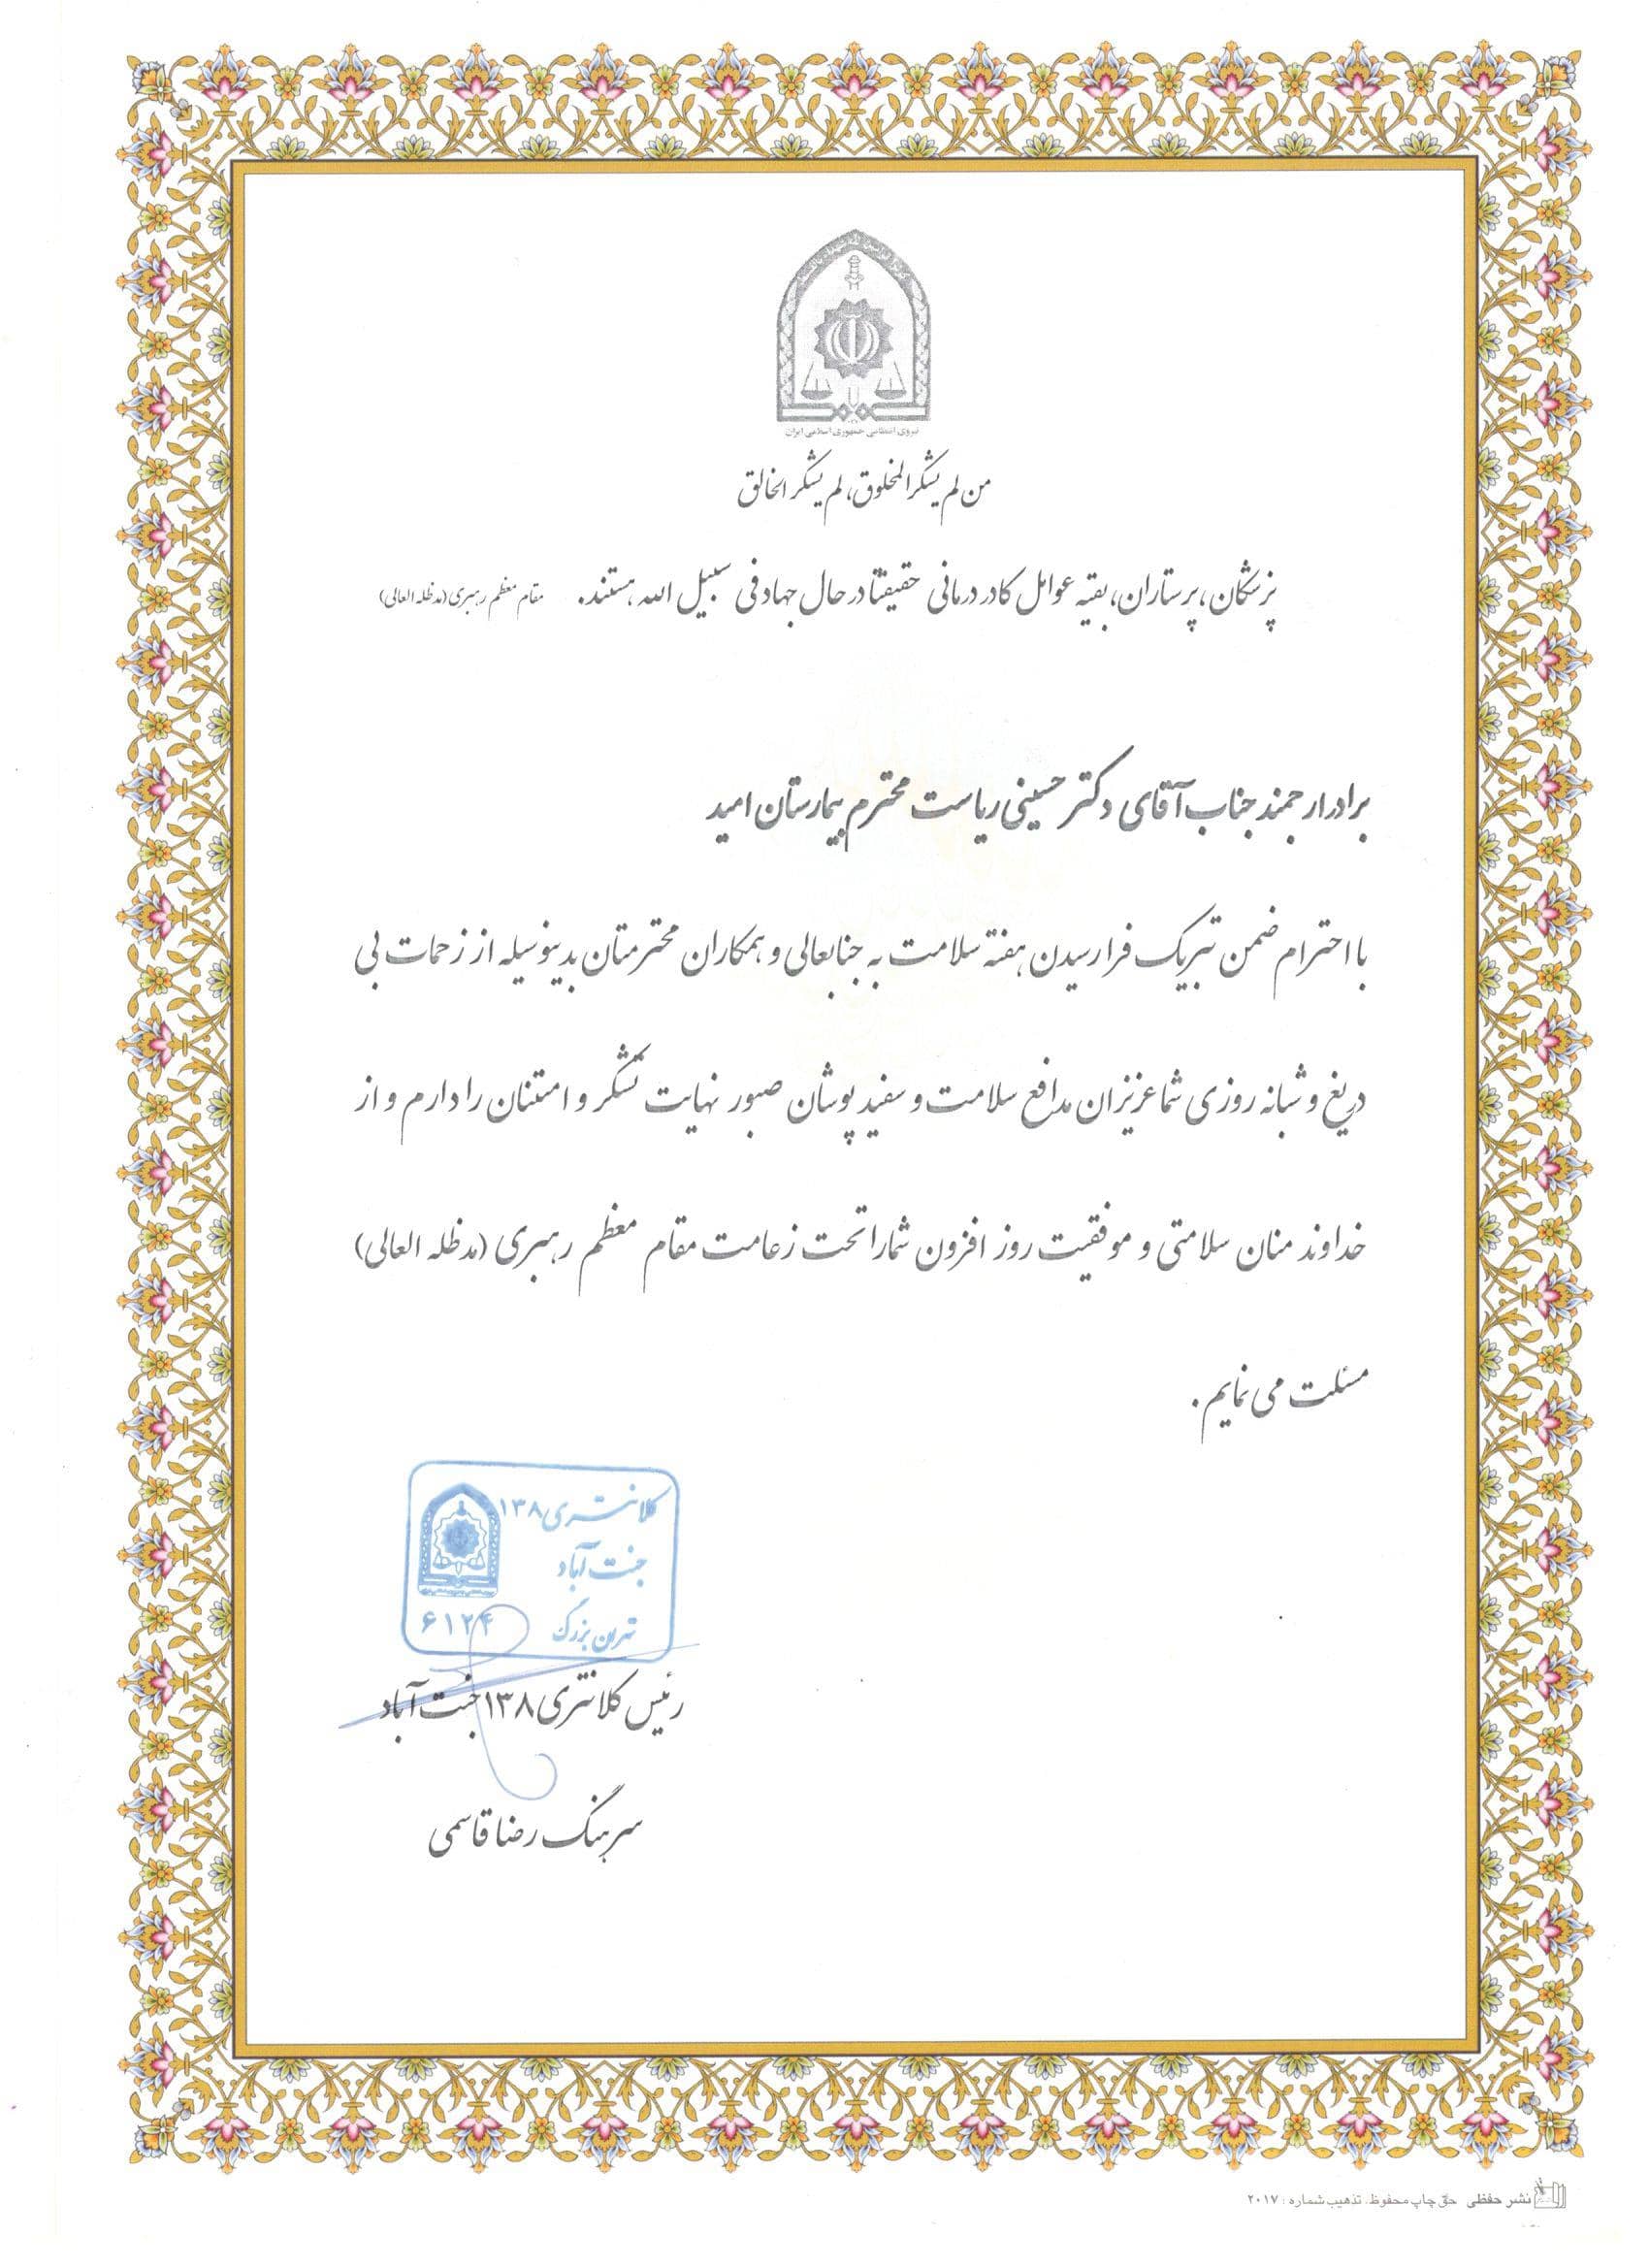 نیروی انتظامی جمهوری اسلامی ایران
من لم یشکر المخلوق، لم یشکر الخالق
پزشکان، پرستاران، بقیه عوامل کادر درمانی حقیقتاً در حال جهاد فی سبیل الله هستند. مقام معظم رهبری (مدظله العالی)
برادر ارجمند جناب آقای دکتر حسینی ریاست محترم بیمارستان امید
با احترام ضمن تبریک فرا رسیدن هفته سلامت به جنابعالی و همکاران محترمتان بدینوسیله از زحمات بی
دریغ و شبانه روزی شما عزیزان مدافع سلامت و سفید پوشان صبور نهایت تشکر و امتنان را دارم و از
خداوند منان سلامتی و موفقیت روز افزون شما را تحت زعامت مقام معظم رهبری (مدظله العالی)
مسئلت می نمایم.
کلانتری ۱۳۸
جنت آباد
تهران بزرگ
۶۱۲۴
رئیس کلانتری ۱۳۸ جنت آباد
سرهنگ رضا قاسمی
نشر حفظی حق چاپ محفوظ. تذهیب شماره : ۲۰۱۷